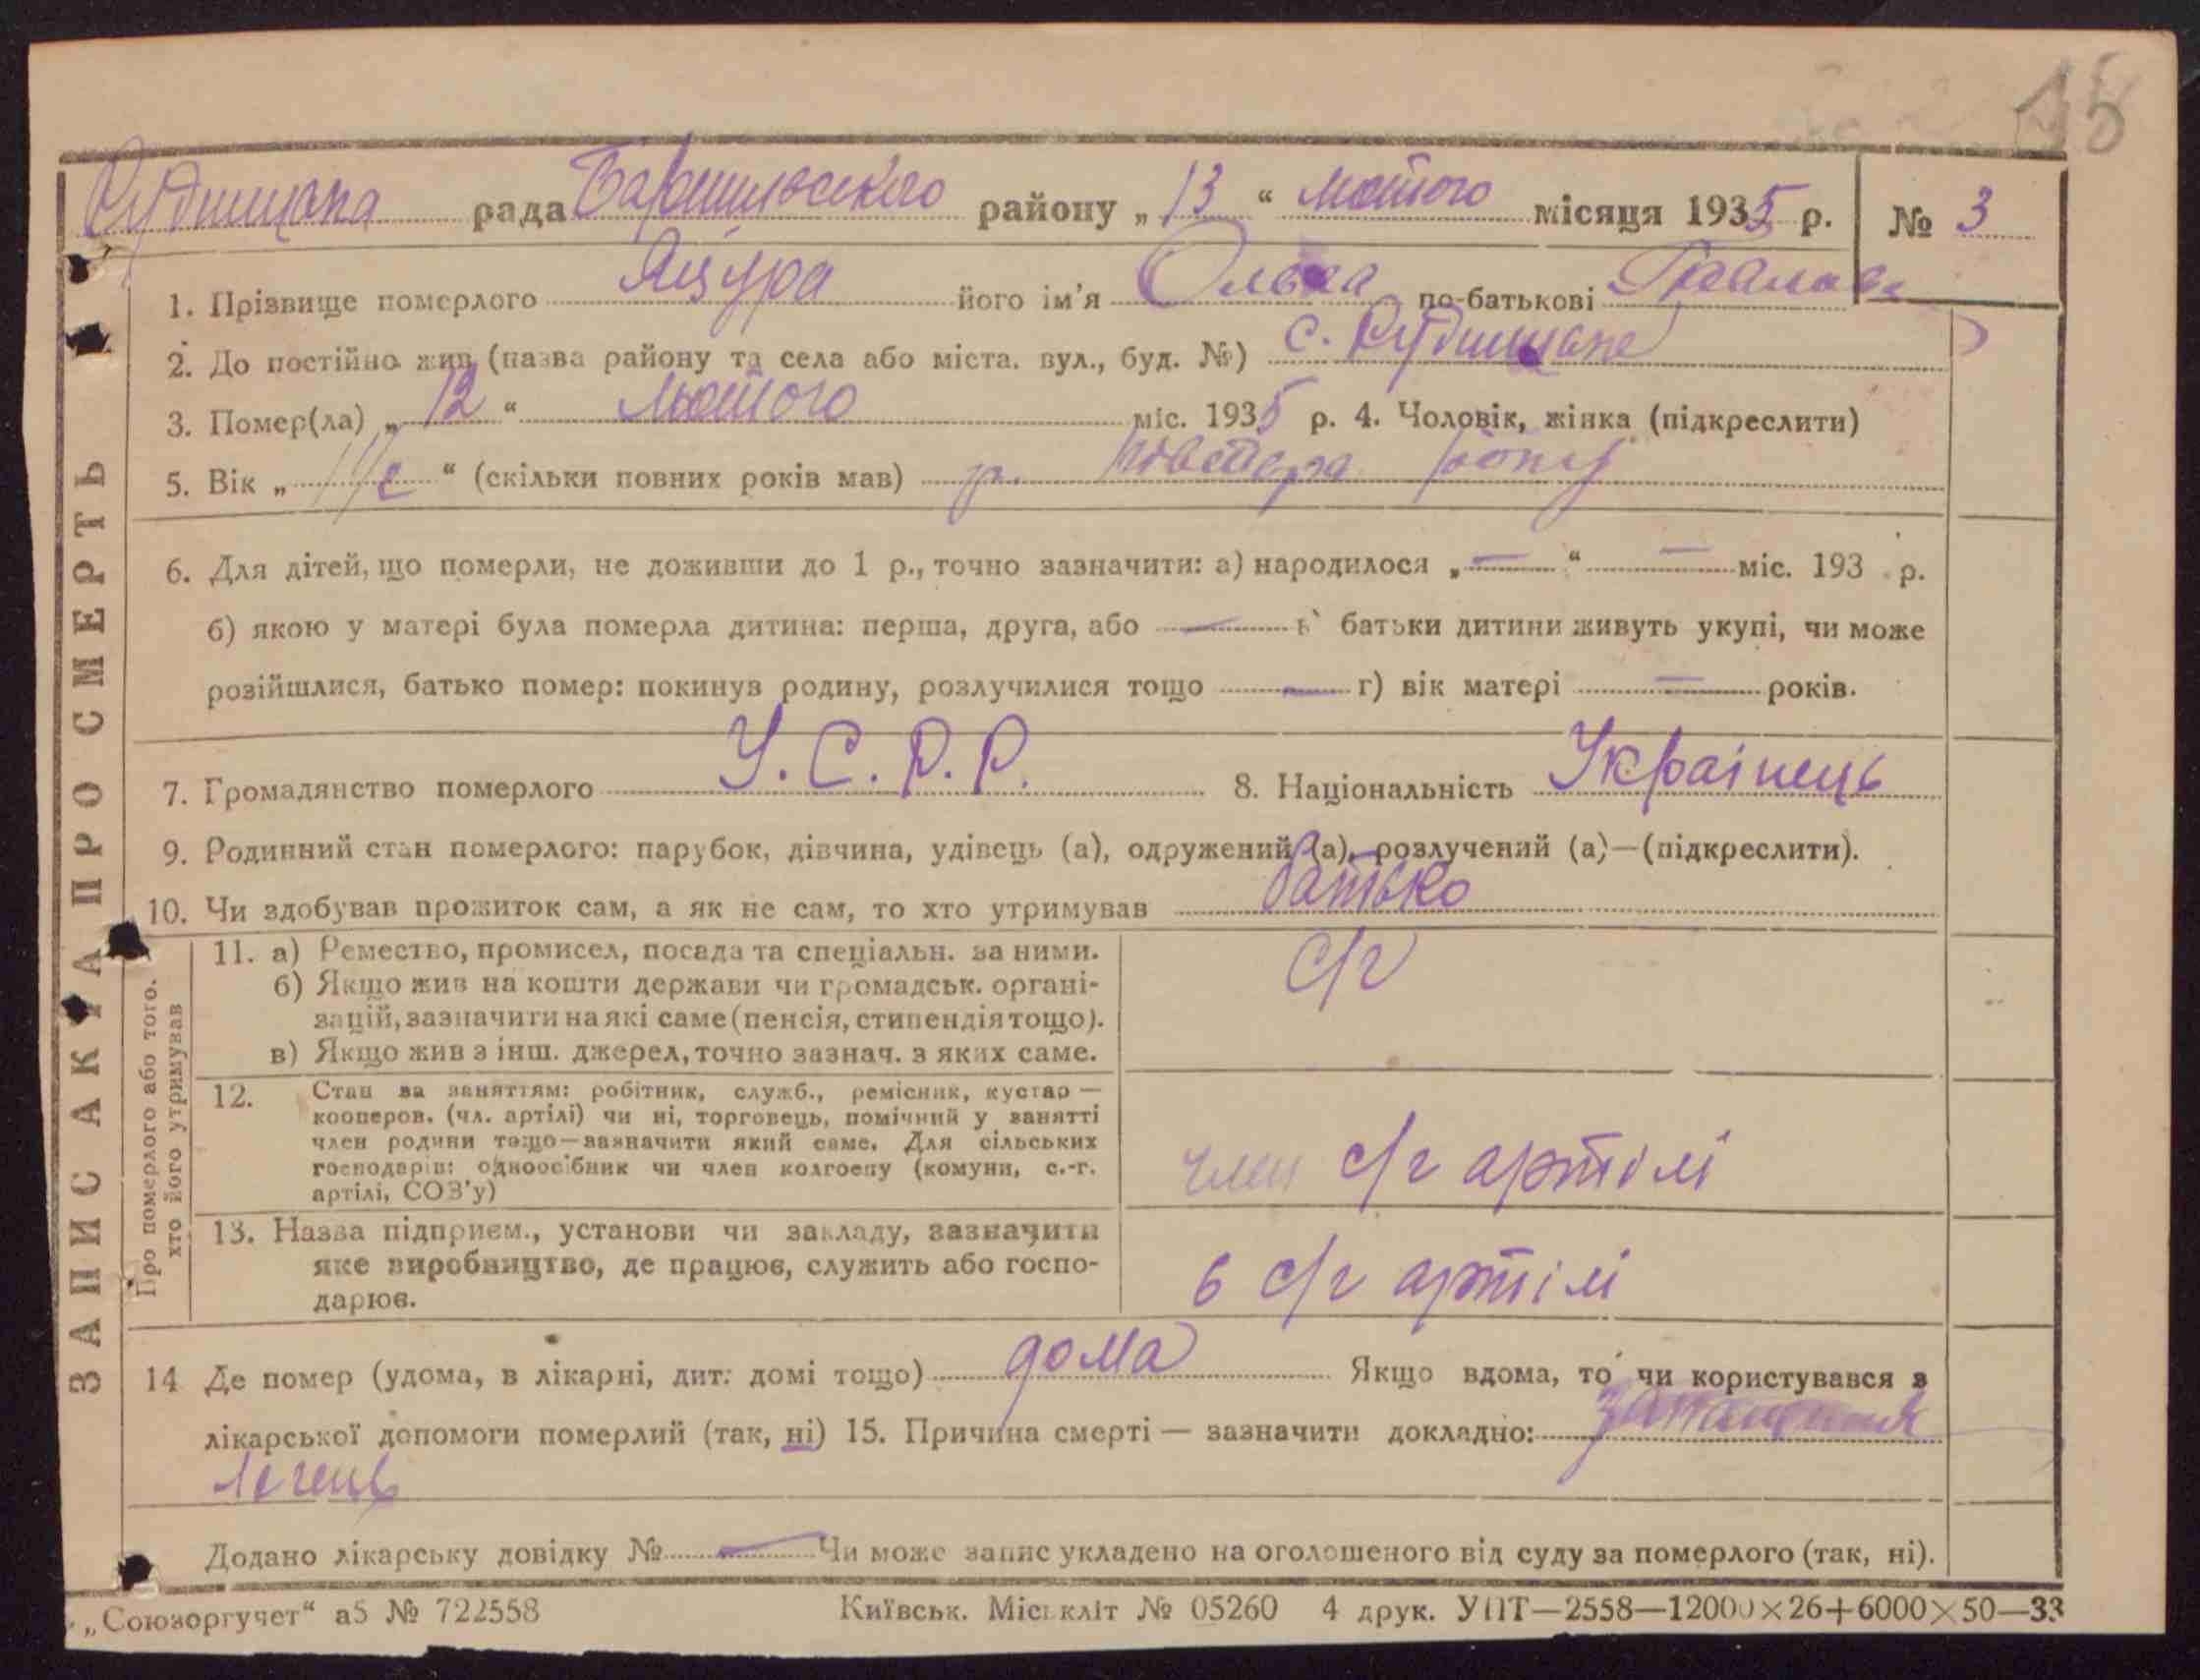 15
рада Баришивського району „13“ лютого місяця 1935 р. № 3
1. Прізвище померлого Яцура його ім'я Ольга по-батькові
2. До постійно жив (назва району та села або міста. вул., буд. №) с.
3. Помер(ла) „12“ лютого міс. 1935 р. 4. Чоловік, жінка (підкреслити)
5. Вік „ “ (скільки повних років мав) півтора року
6. Для дітей, що померли, не доживши до 1 р., точно зазначити: а) народилося „—“ — міс. 193 р.
б) якою у матері була померла дитина: перша, друга, або — батьки дитини живуть укупі, чи може
розійшлися, батько помер: покинув родину, розлучилися тощо — г) вік матері — років.
7. Громадянство померлого У.С.Р.Р. 8. Національність Українець
9. Родинний стан померлого: парубок, дівчина, удівець (а), одружений (а), розлучений (а)—(підкреслити).
10. Чи здобував прожиток сам, а як не сам, то хто утримував батько
11. а) Ремество, промисел, посада та спеціальн. за ними. с/г
б) Якщо жив на кошти держави чи громадськ. органі-
зацій, зазначити на які саме (пенсія, стипендія тощо).
в) Якщо жив з інш. джерел, точно зазнач. з яких саме.
12. Стан за заняттям: робітник, служб., ремісник, кустар —
кооперов. (чл. артілі) чи ні, торговець, помічний у занятті
член родини тощо—зазначити який саме. Для сільських
господарів: одноосібник чи член колгоспу (комуни, с.-г.
артілі, СОЗ'у)
член с/г артілі
13. Назва підприєм., установи чи закладу, зазначити
яке виробництво, де працює, служить або госпо-
дарює.
в с/г артілі
14 Де помер (удома, в лікарні, дит. домі тощо) дома Якщо вдома, то чи користувався з
лікарської допомоги померлий (так, ні) 15. Причина смерті — зазначити докладно: запалення
легень
Додано лікарську довідку № — Чи може запис укладено на оголошеного від суду за померлого (так, ні).
„Союзоргучет“ а5 № 722558 Київськ. Міськліт № 05260 4 друк. УПТ—2558—12000×26+6000×50—33
ЗАПИС АКТА ПРО СМЕРТЬ
Про померлого або того,
хто його утримував